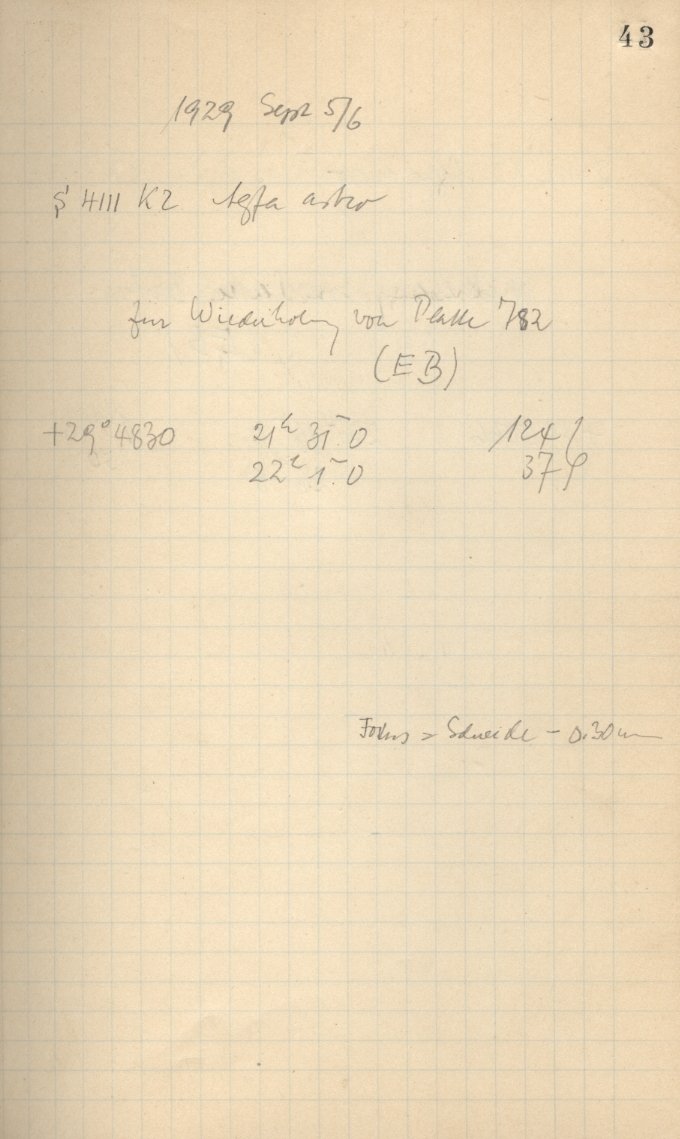 43
1929 Sept 5/6
K2 Agfa astro
zur Wiederholung von Platte 782
(EB)
+29°4830 21h 31m.0 124
22h 1m.0 37
Fokus = Schneide - 0.30mm